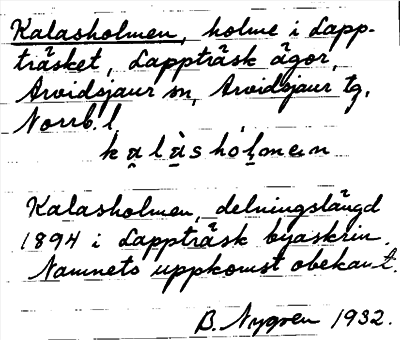 Kalasholmen, holme i Lapp-
träsket, Lappträsk ägor,
Arvidsjaur sn, Arvidsjaur tg,
Norrb. l.
ka̱là̱shó̱lmen
Kalasholmen, delningslängd
1894 i Lappträsk byaskrin.
Namnets uppkomst obekant.
B. Nygren 1932.